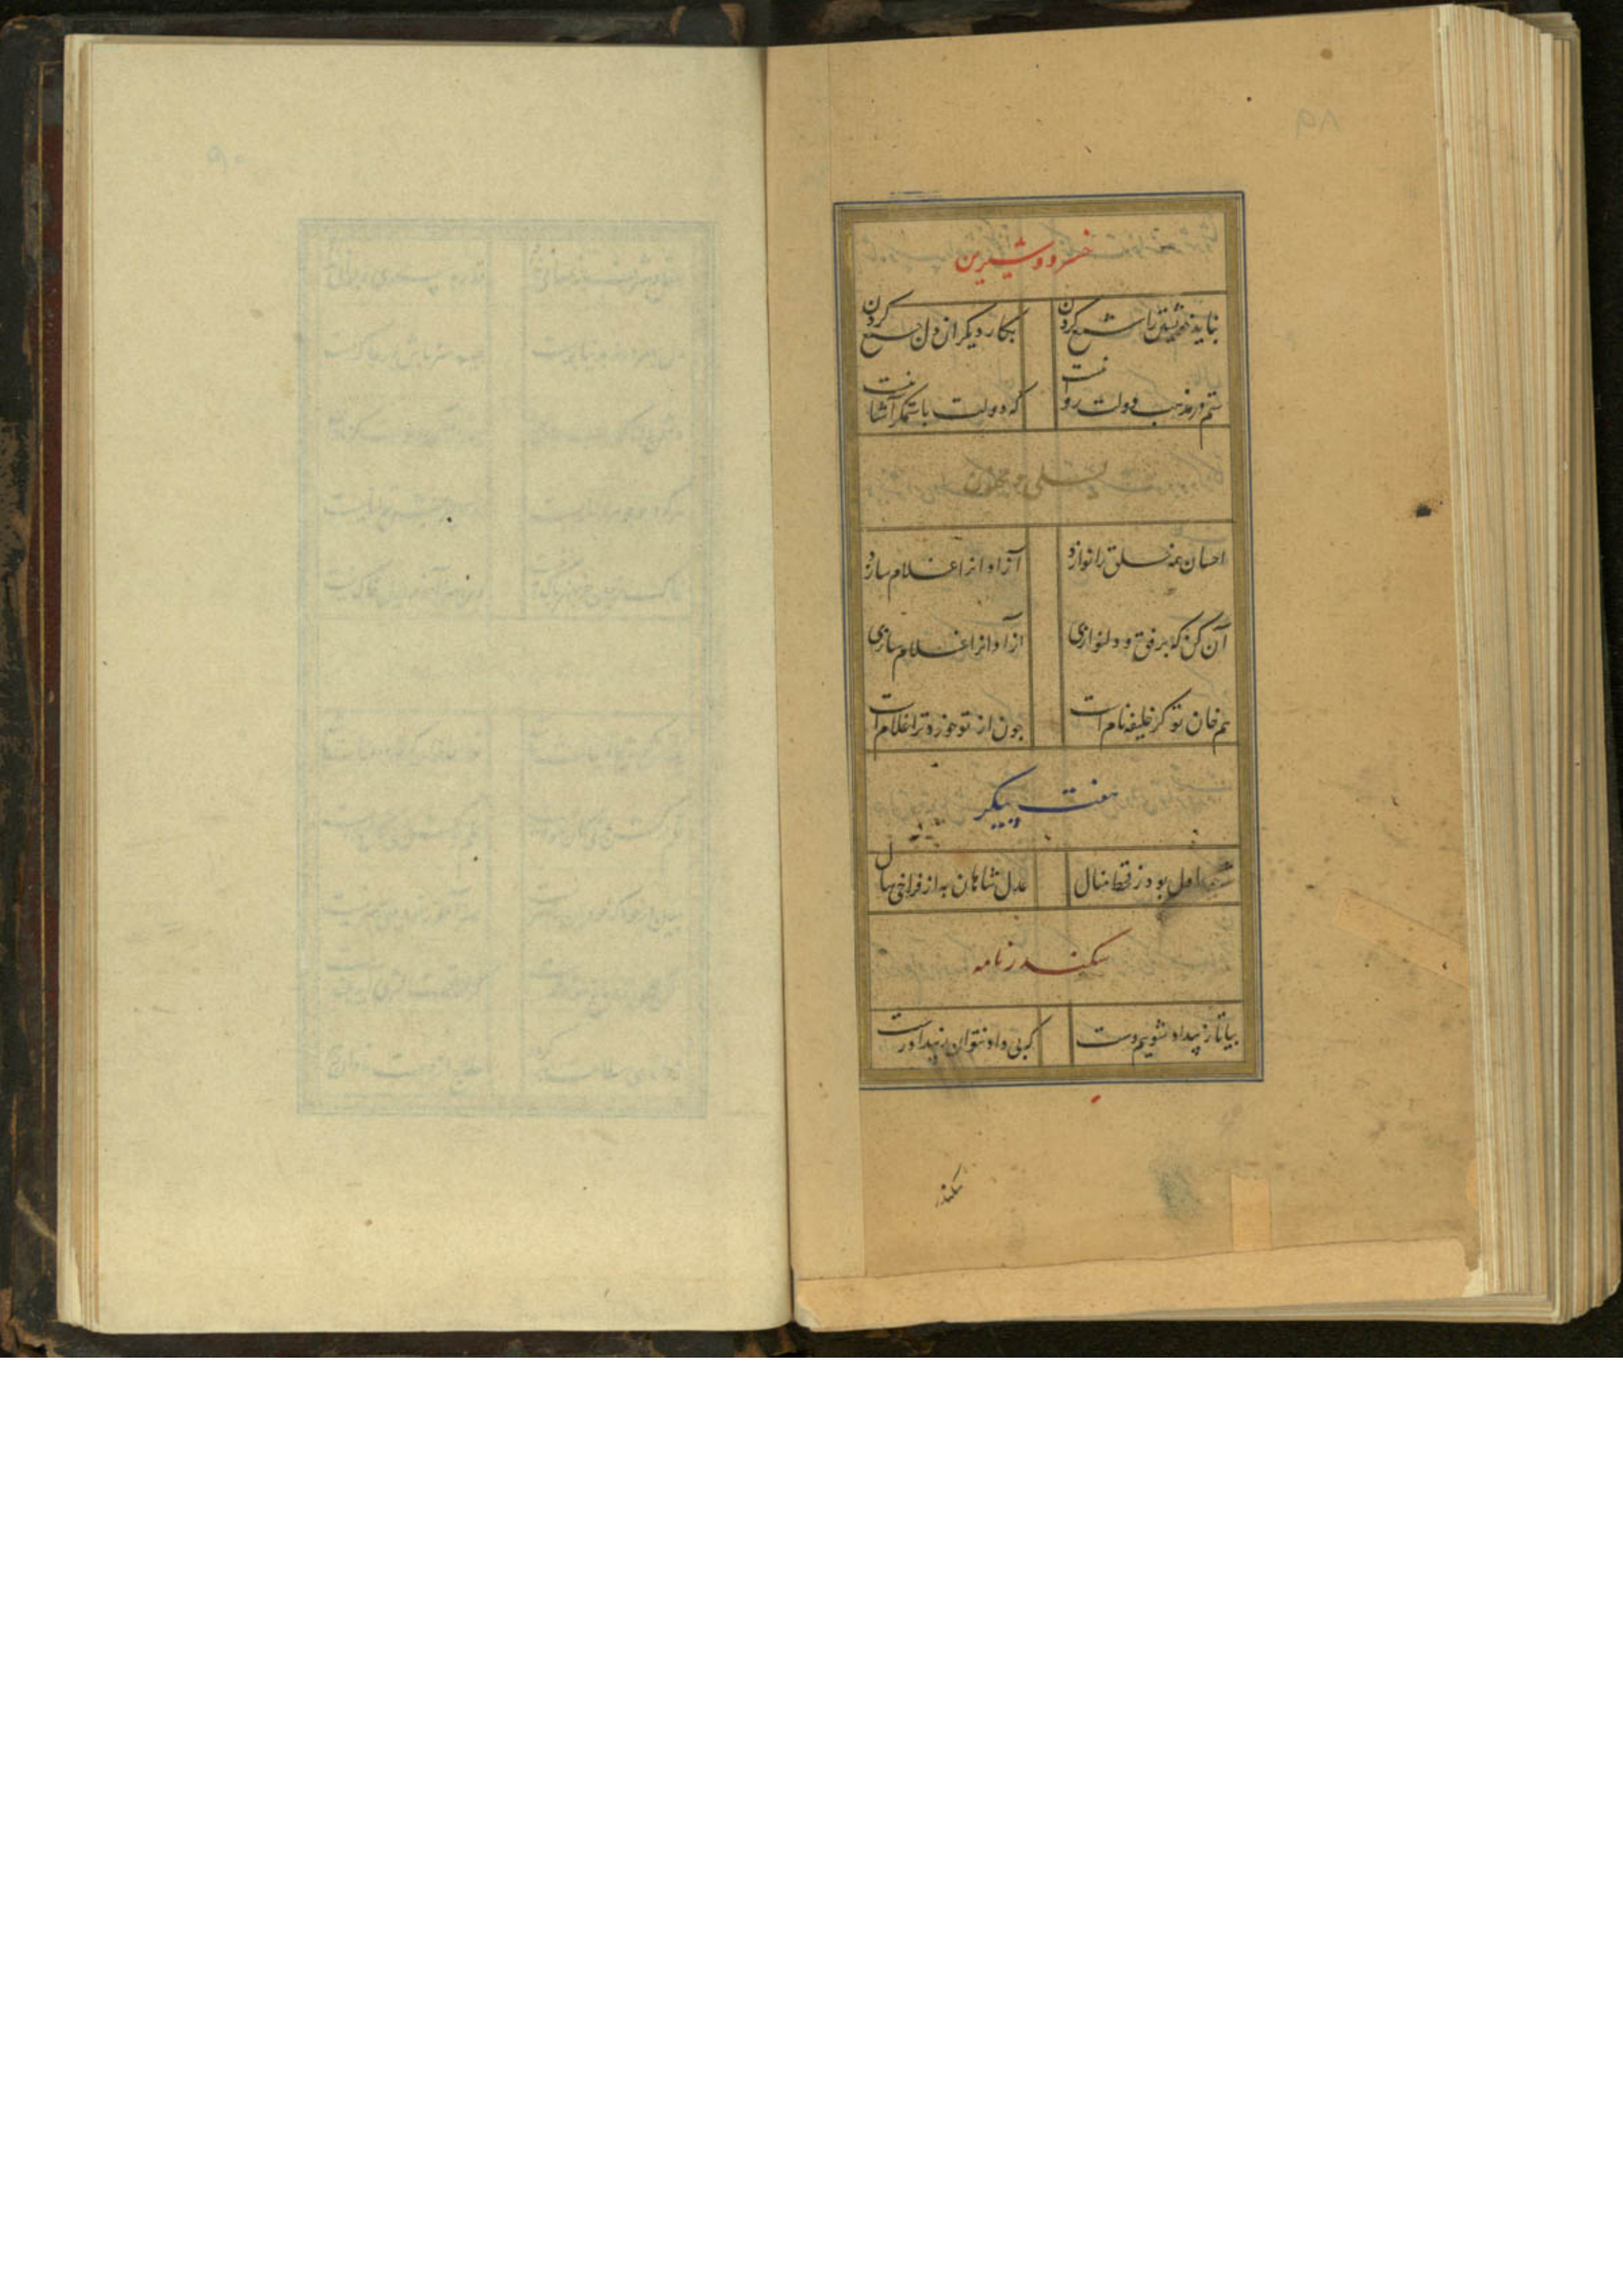 خسرو و شیرین
نباید خویشتن را شمع کردن بکار دیگران دل جمع کردن
ستم در مذهب دولت روا نیست که دولت با ستمگر آشنا نیست
لیلی و مجنون
احسان همه خلق را نوازد آزادانرا غلام سازد
آن کن که برفق و دلنوازی ازادانرا غلام سازی
هم خان تو کز خلیفه نام است چون از تو خورد ترا غلام است
هفت پیکر
اول بود ز قحط منال عدل شاهان به از فراخی سال
سکندر نامه
بیا تا ز بیداد شوییم دست که بی داد نتوان ز بیداد رست
سکندر